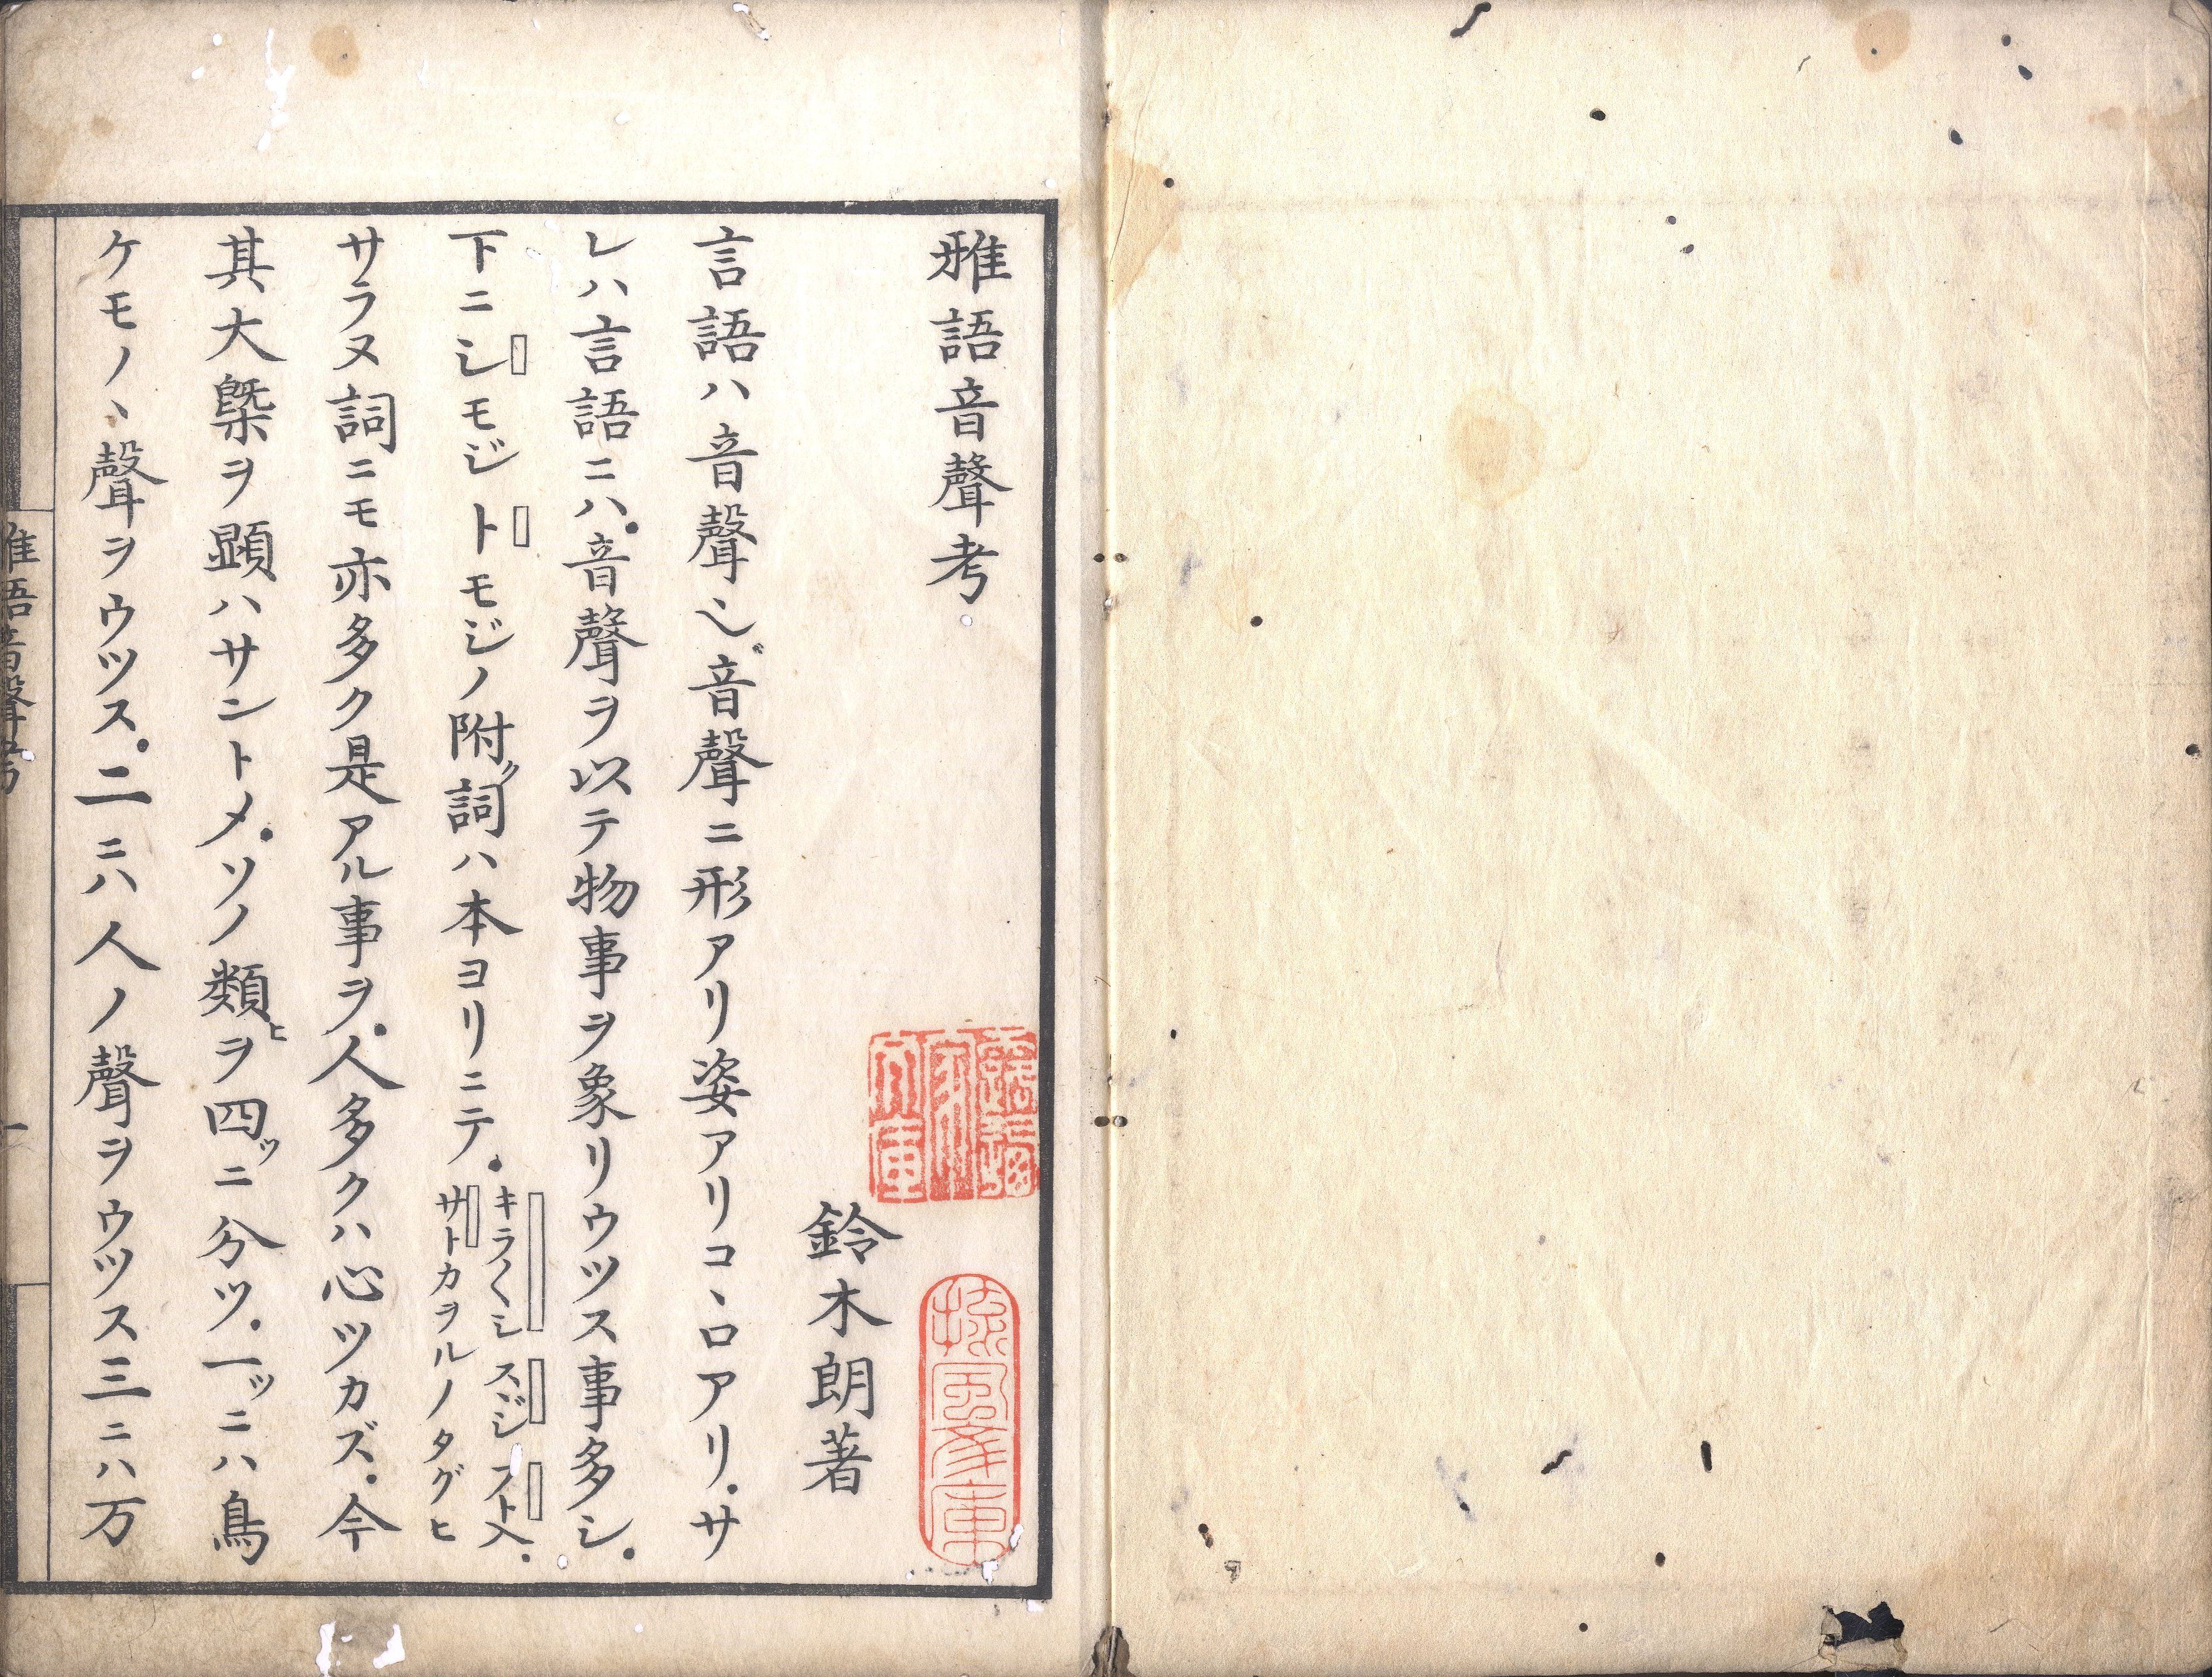 雅語音聲考
鈴木朗著
言語ハ音聲也音聲ニ形アリ姿アリコヽロアリ.サ
レハ言語ニハ.音聲ヲ以テ物事ヲ象リウツス事多シ.
下ニシモジトモジノ附ク詞ハ本ヨリニテ.
キラ〱シ スジ フト入.
サトカヲルノタグヒ
サラヌ詞ニモ亦多ク是アル事ヲ.人多クハ心ツカズ.今
其大槩ヲ顕ハサントメ.ソノ類ヒヲ四ツニ分ツ.一ツニハ鳥
ケモノヽ聲ヲウツス.二ニハ人ノ聲ヲウツス三ニハ万
雅語音聲考
一